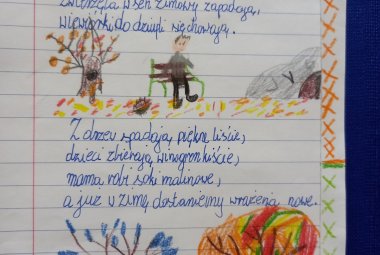 Zwierzęta w sen zimowy zapadają,
wiewiórki do dziupli się chowają.
Z drzew spadają piękne liście,
dzieci zbierają winogron kiście,
mama robi soki malinowe,
a już w zimę dostaniemy wrażenia nowe.